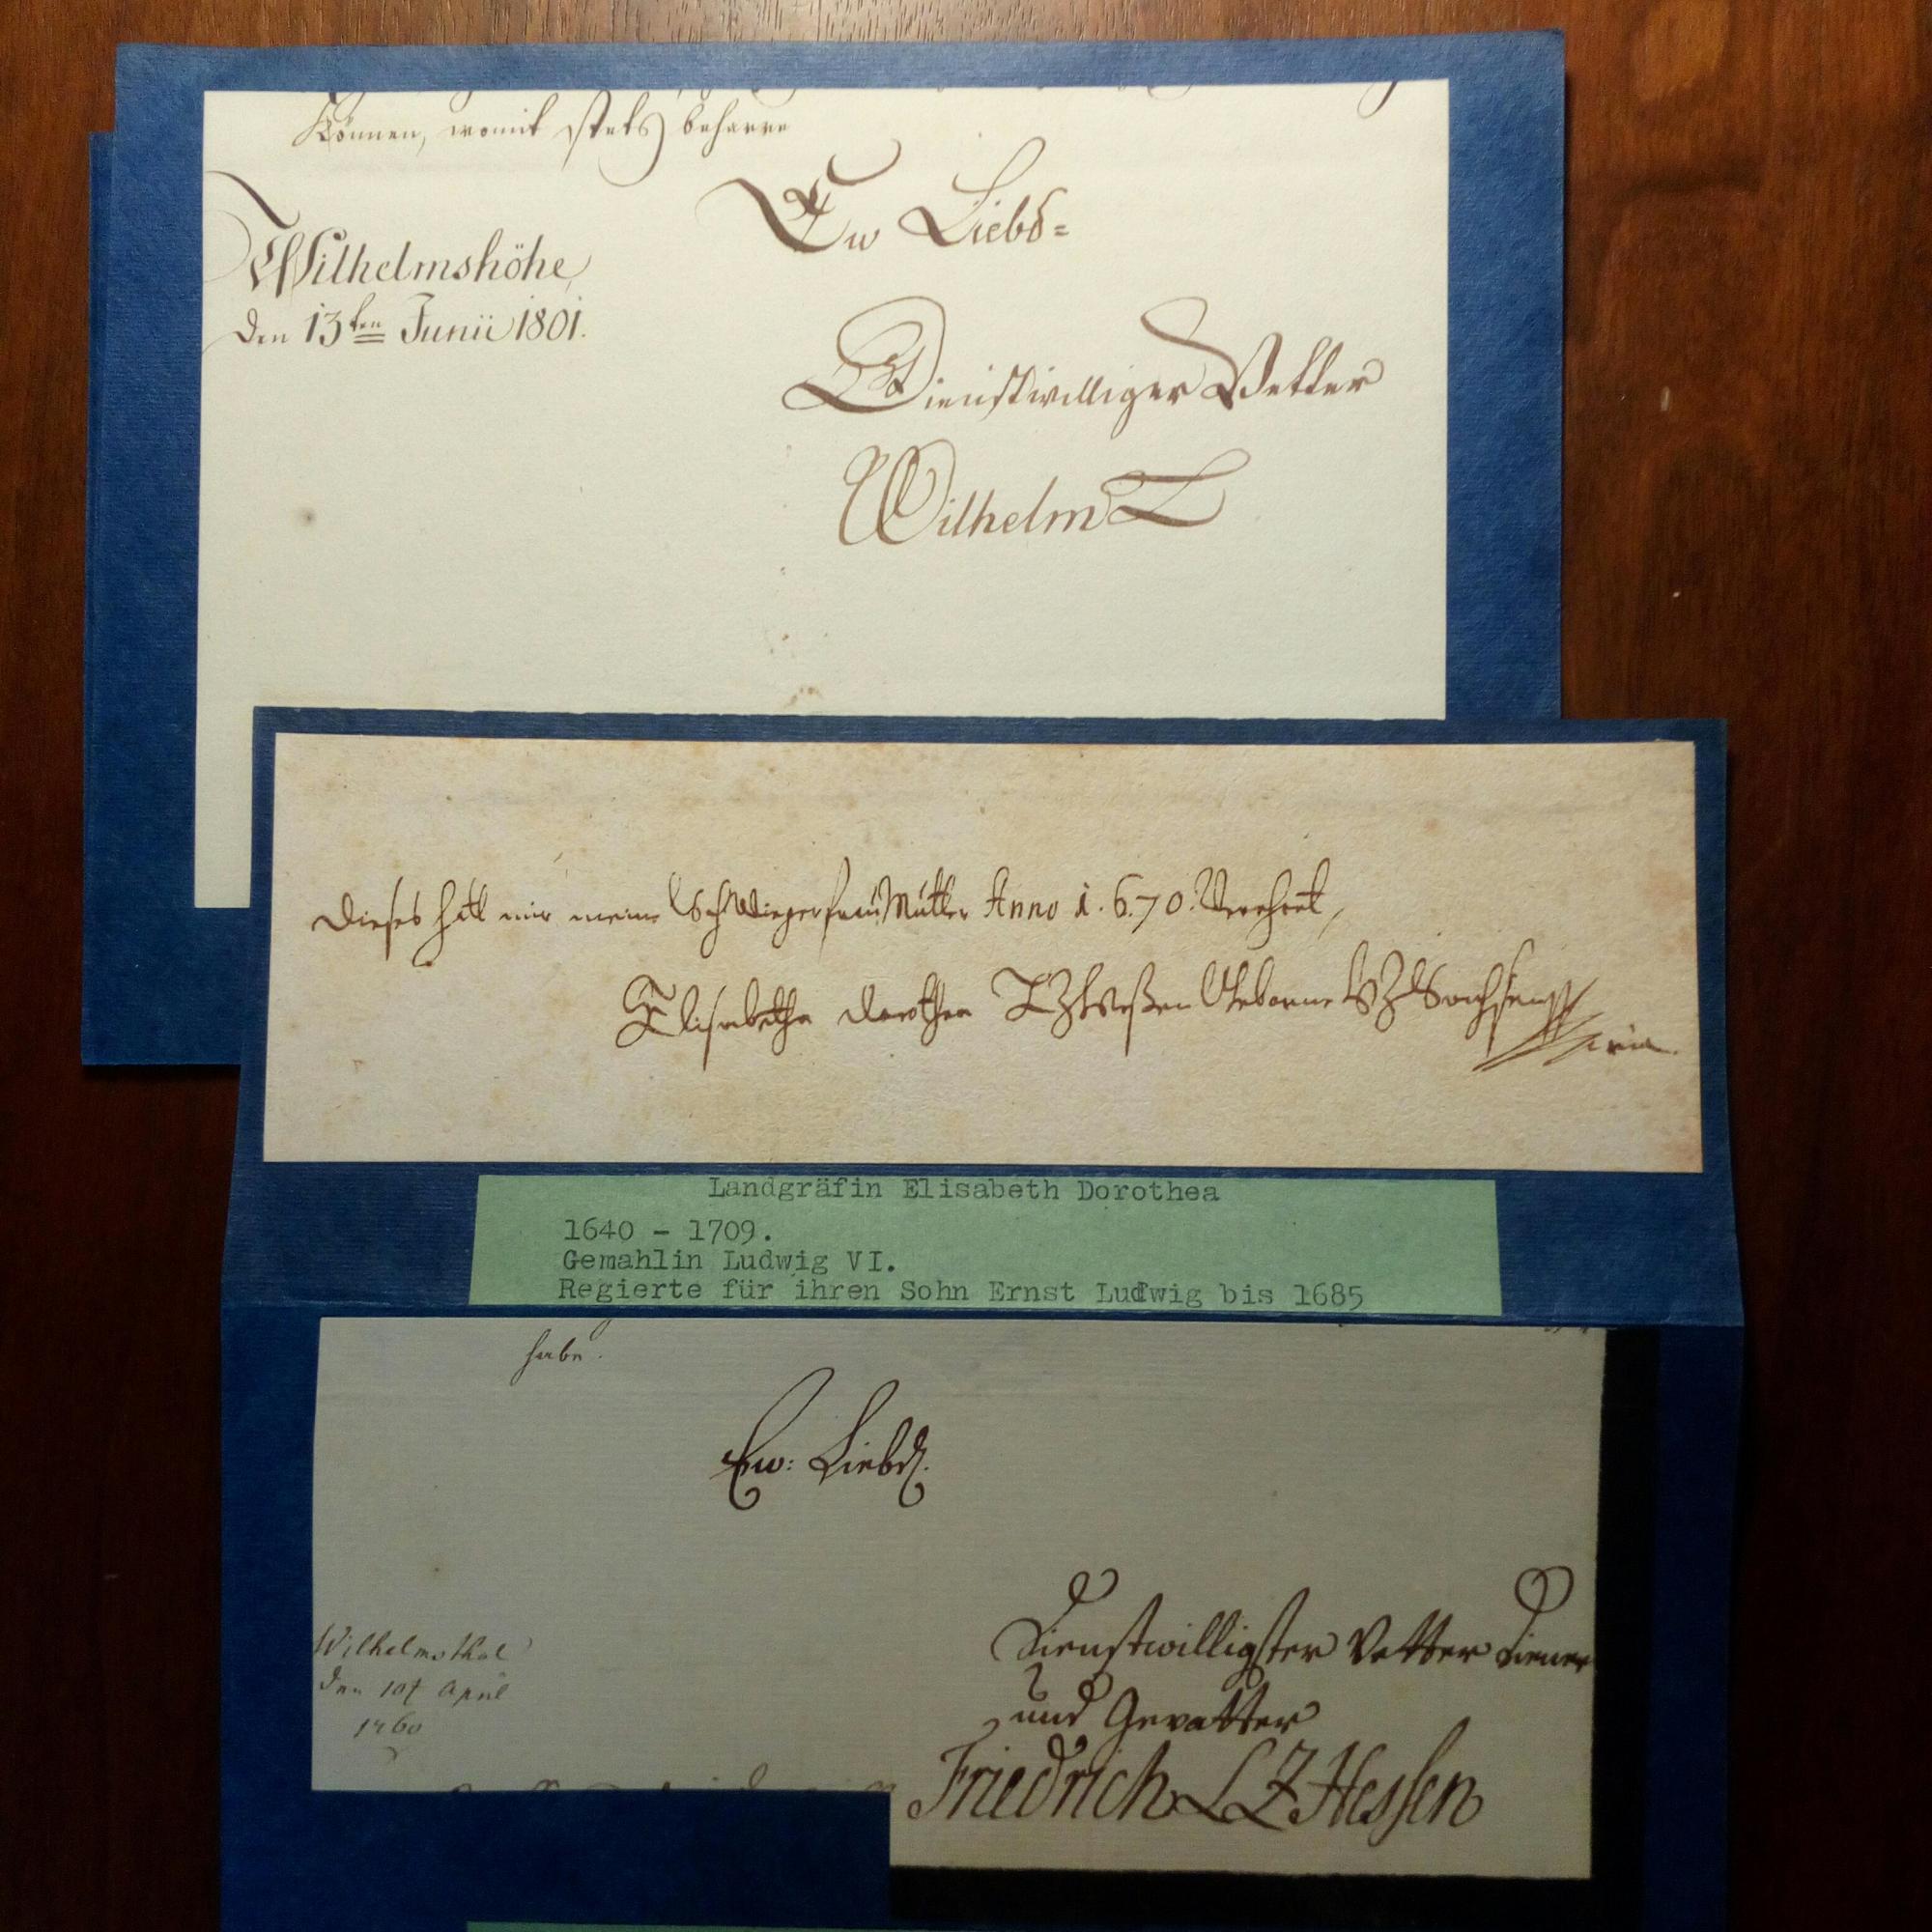 Können, womit stets beharre
Ew Liebd=
Wilhelmshöhe,
den 13ten Junii 1801.
Dienstwilliger Vetter
Wilhelm L
Dieses hatt mir meine Schwiegerfrau Mutter Anno 1.6.70. Verehret,
Elisabetha Dorothea LZHeßen Geborne HZSachsen
Landgräfin Elisabeth Dorothea
1640 - 1709.
Gemahlin Ludwig VI.
Regierte für ihren Sohn Ernst Ludwig bis 1685
habe.
Ew: Liebd.
Wilhelmsthal
den 10t April
1760
Dienstwilligster Vetter Diener
und Gevatter
Friedrich LZHessen